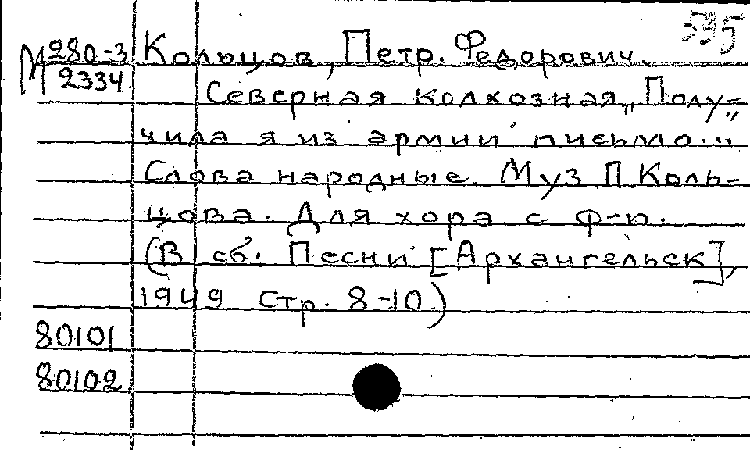 М 280-3 Кольцов, Петр. Федорович. 595
2334
Северная колхозная „Полу-
чила я из армии письмо..."
Слова народные. Муз П. Коль-
цова. Для хора с ф-ю.
(В сб. Песни [Архангельск],
1949 Стр. 8-10)
80101
80102